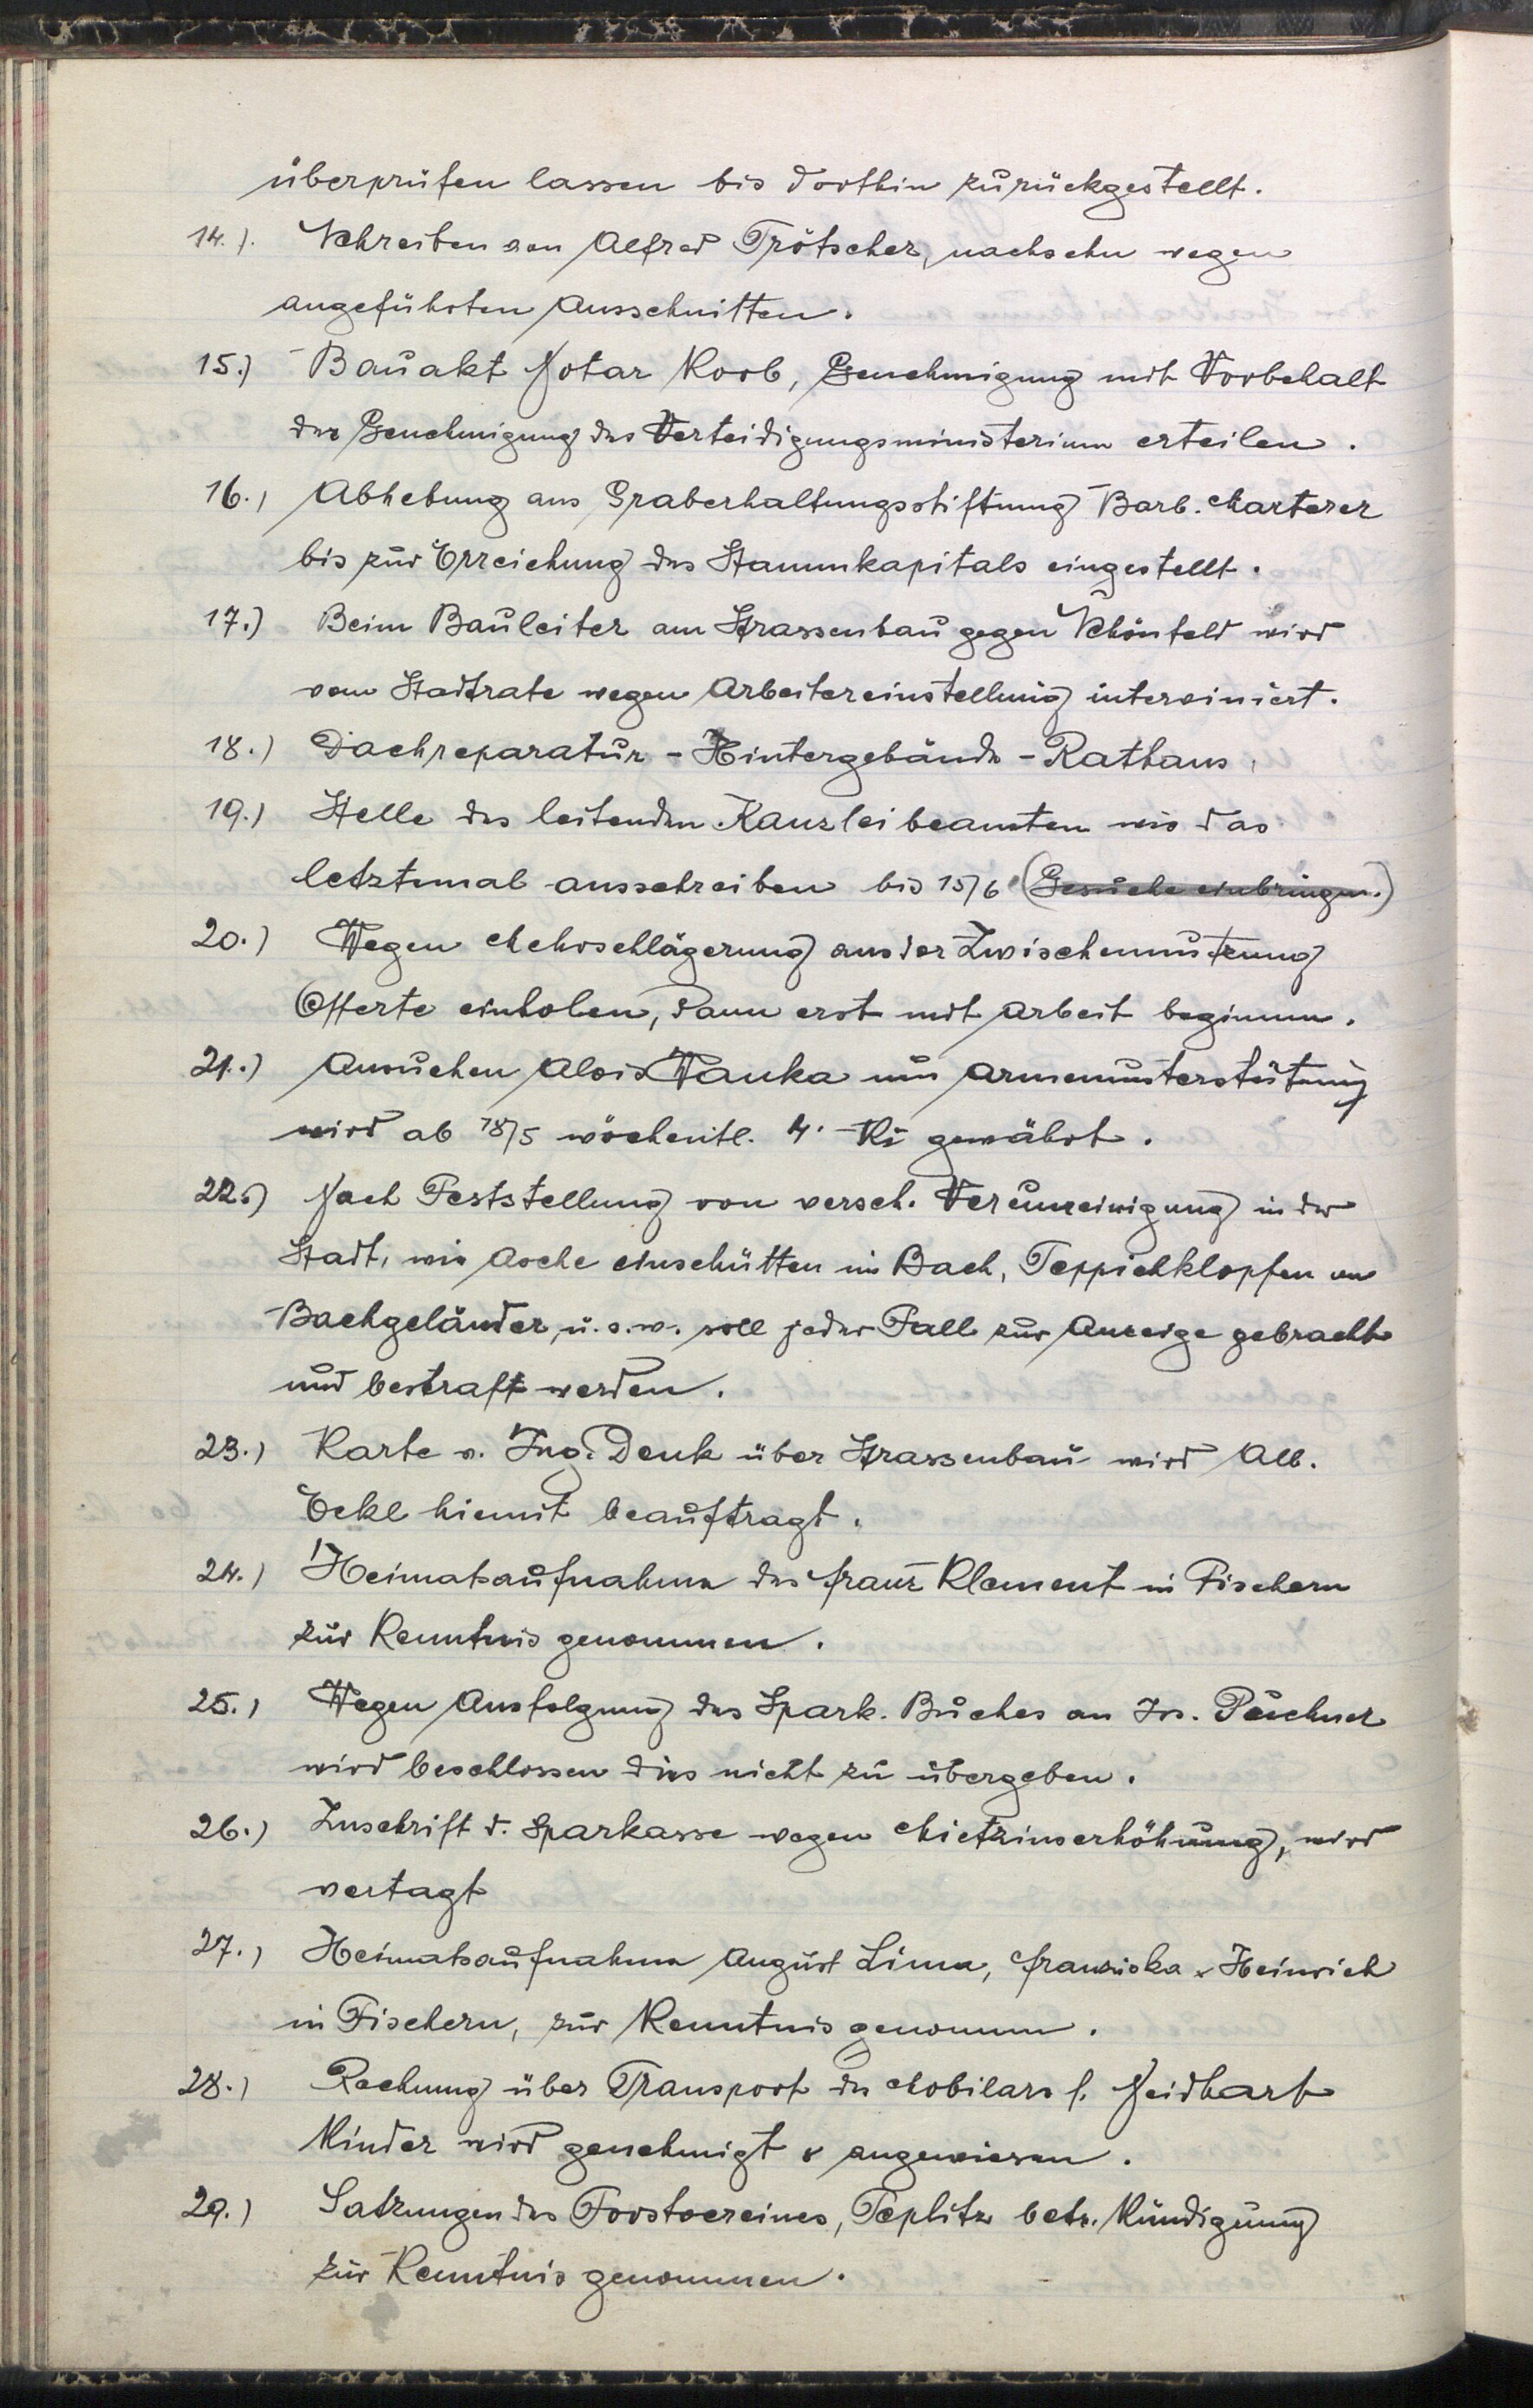 überprüfen lassen bis dorthin zurückgestellt.
14.). Schreiben von Alfred Trötscher, nachsehn wegen
angeführten Ausschnitten.
15.) Bauakt Notar Korb, Genehmigung mit Vorbehalt
der Genehmigung des Verteidigungsministerium erteilen.
16.) Abhebung aus Graberhaltungsstiftung Barb. Marterer
bis zur Erreichung des Stammkapitals eingestellt.
17.) Beim Bauleiter am Strassenbau gegen Schönfeld wird
vom Stadtrate wegen Arbeitereinstellung interviniert.
18.) Dachreparatur - Hintergebäude - Rathaus,
19.) Stelle des leitenden Kanzleibeamten wie das
letztemal ausschreiben bis 15/6 (Gesuche einbringen.)
20.) Wegen Mehrschlägerung aus der Zwischennutzung
Offerte einholen, dann erst mit Arbeit beginnen.
21.) Ansuchen Alois Wanka um Armenunterstützung
wird ab 18/5 wöchentl. 4.- Kč gewährt.
22.) Nach Feststellung von versch. Verunreinigung in der
Stadt, wie Asche einschütten im Bach, Teppichklopfen am
Bachgeländer, u.s.w. soll jeder Fall zur Anzeige gebracht
und bestraft werden.
23.) Karte v. Ing. Denk über Strassenbau wird Alb.
Eckl hiemit beauftragt.
24.) Heimatsaufnahme des Franz Klement in Fischern
zur Kenntnis genommen.
25.) Wegen Ausfolgung des Spark. Buches an Jos. Puchner
wird beschlossen dies nicht zu übergeben.
26.) Zuschrift d. Sparkasse wegen Mietzinserhöhung, wird
vertagt
27.) Heimatsaufnahme August Lima, Franziska & Heinrich
in Fischern, zur Kenntnis genommen.
28.) Rechnung über Transport des Mobilars f. Neidhart
Kinder wird genehmigt & angewiesen.
29.) Satzungen des Forstvereines, Teplitz betr. Kündigung
zur Kenntnis genommen.